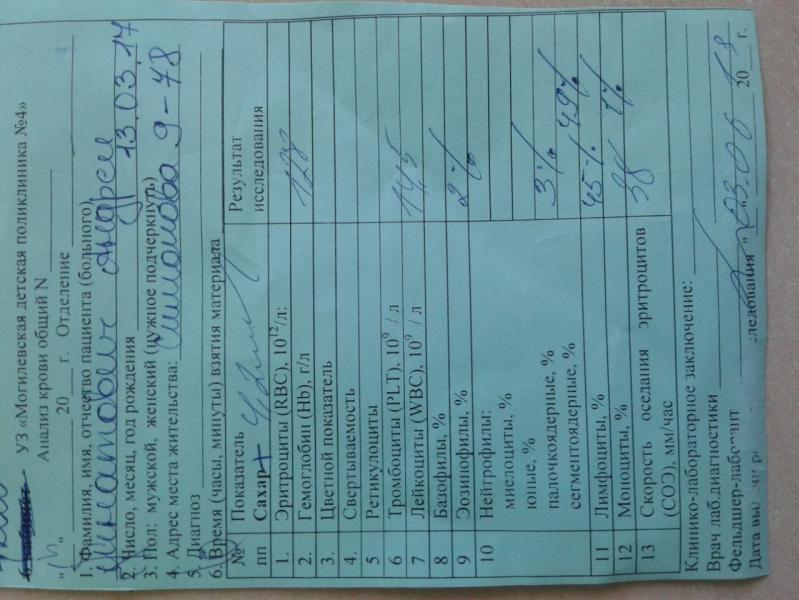 УЗ «Могилевская детская поликлиника №4»
Анализ крови общий N
" " 20 г. Отделение
1. Фамилия, имя, отчество пациента (больного)
Андрей
2. Число, месяц, год рождения 13.03.17
3. Пол: мужской, женский (нужное подчеркнуть)
4. Адрес места жительства: 9-48
5. Диагноз
6. Время (часы, минуты) взятия материала
№ пп Показатель Результат исследования
Сахар
1. Эритроциты (RBC), 10¹²/л:
2. Гемоглобин (Hb), г/л 128
3. Цветной показатель
4. Свертываемость
5 Ретикулоциты
6 Тромбоциты (PLT), 10⁹ / л
7 Лейкоциты (WBC), 10⁹ / л 14,5
8 Базофилы, %
9 Эозинофилы, % 2%
10 Нейтрофилы:
миелоциты, %
юные, %
палочкоядерные, % 3%
сегментоядерные, % 49%
11 Лимфоциты, % 45%
12 Моноциты, % 1%
13 Скорость оседания эритроцитов (СОЭ), мм/час 38
Клинико-лабораторное заключение:
Врач лаб.диагностики
Фельдшер-лаборант
Дата "03.06 2018 г.